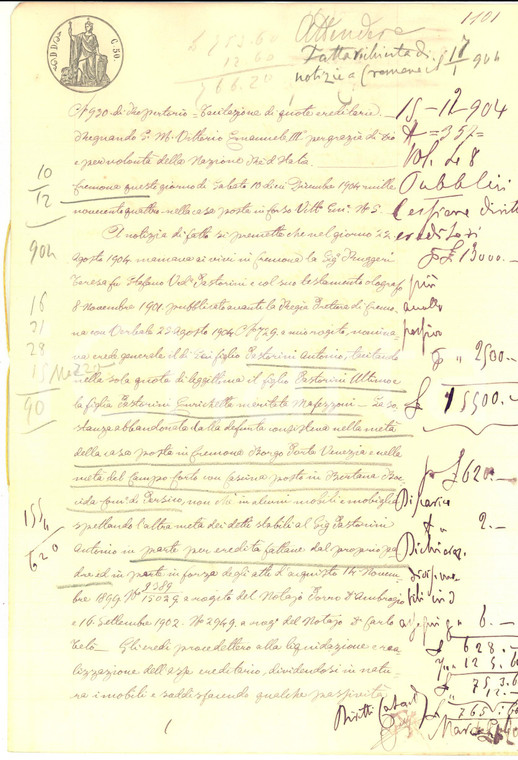 1101
£ 753.60
12.60
766.20
Attendere
Fatta richiesta di
notizie a Cremona
17
904
C. 50.
N° 930 di Repertorio - Tacitazione di quote ereditarie.
Regnando S. M. Vittorio Emanuele III per grazia di Dio
e per volontà della Nazione Re d'Italia.
Cremona questo giorno di Sabato 10 dieci Dicembre 1904 mille
novecento quattro nella casa posta in Corso Vitt. Em. N° 5.
A notizia di fatto si premette che nel giorno 22
Agosto 1904 mancava ai vivi in Cremona la Sig.ra Ruggeri
Teresa fu Stefano Ved. Pastorini e col suo testamento olografo
8 Novembre 1901 pubblicato avanti la Regia Pretura di Cremo
na con Verbale 22 Agosto 1904 N° 729 a mio rogito, nomina
va erede generale il di Lei figlio Pastorini Antonio, tacitando
nella sola quota di leggittima il figlio Pastorini Ultimo e
la figlia Pastorini Enrichetta maritata Mafezzoni. La so
stanza abbandonata dalla defunta consisteva nella metà
della casa posta in Cremona Borgo Porta Venezia e nella
metà del Campo Forte con cascina posto in Bertana Bu
cida Com. di Persico, non che in alcuni mobili e mobiglie
spettando l'altra metà dei detti stabili al Sig. Pastorini
Antonio in parte per eredità fattane dal proprio pa
dre ed in parte in forza degli atti d'acquisto 14 Novem
bre 1899 N° 15029 a rogito del Notajo Porro D. Ambrogio
e 16 Settembre 1902 N° 2949 a rog. del Notajo D. Carlo
Gli eredi procedettero alla liquidazione e rea
lizzazione dell'asse ereditario, dividendosi in natu
ra i mobili e soddisfacendo qualche passività
10
12
904
16
21
28
15 mezzo
90
155
620
15-12 904
357
Vol. 28
Pubblici
Cessione diritti
ereditari
£ 13000.-
più
passivo
" 2500-
£ 15500.-
£ 620.-
" 2.-
" 6.-
£ 628.-
753.6
12.-
765.60
Diritti